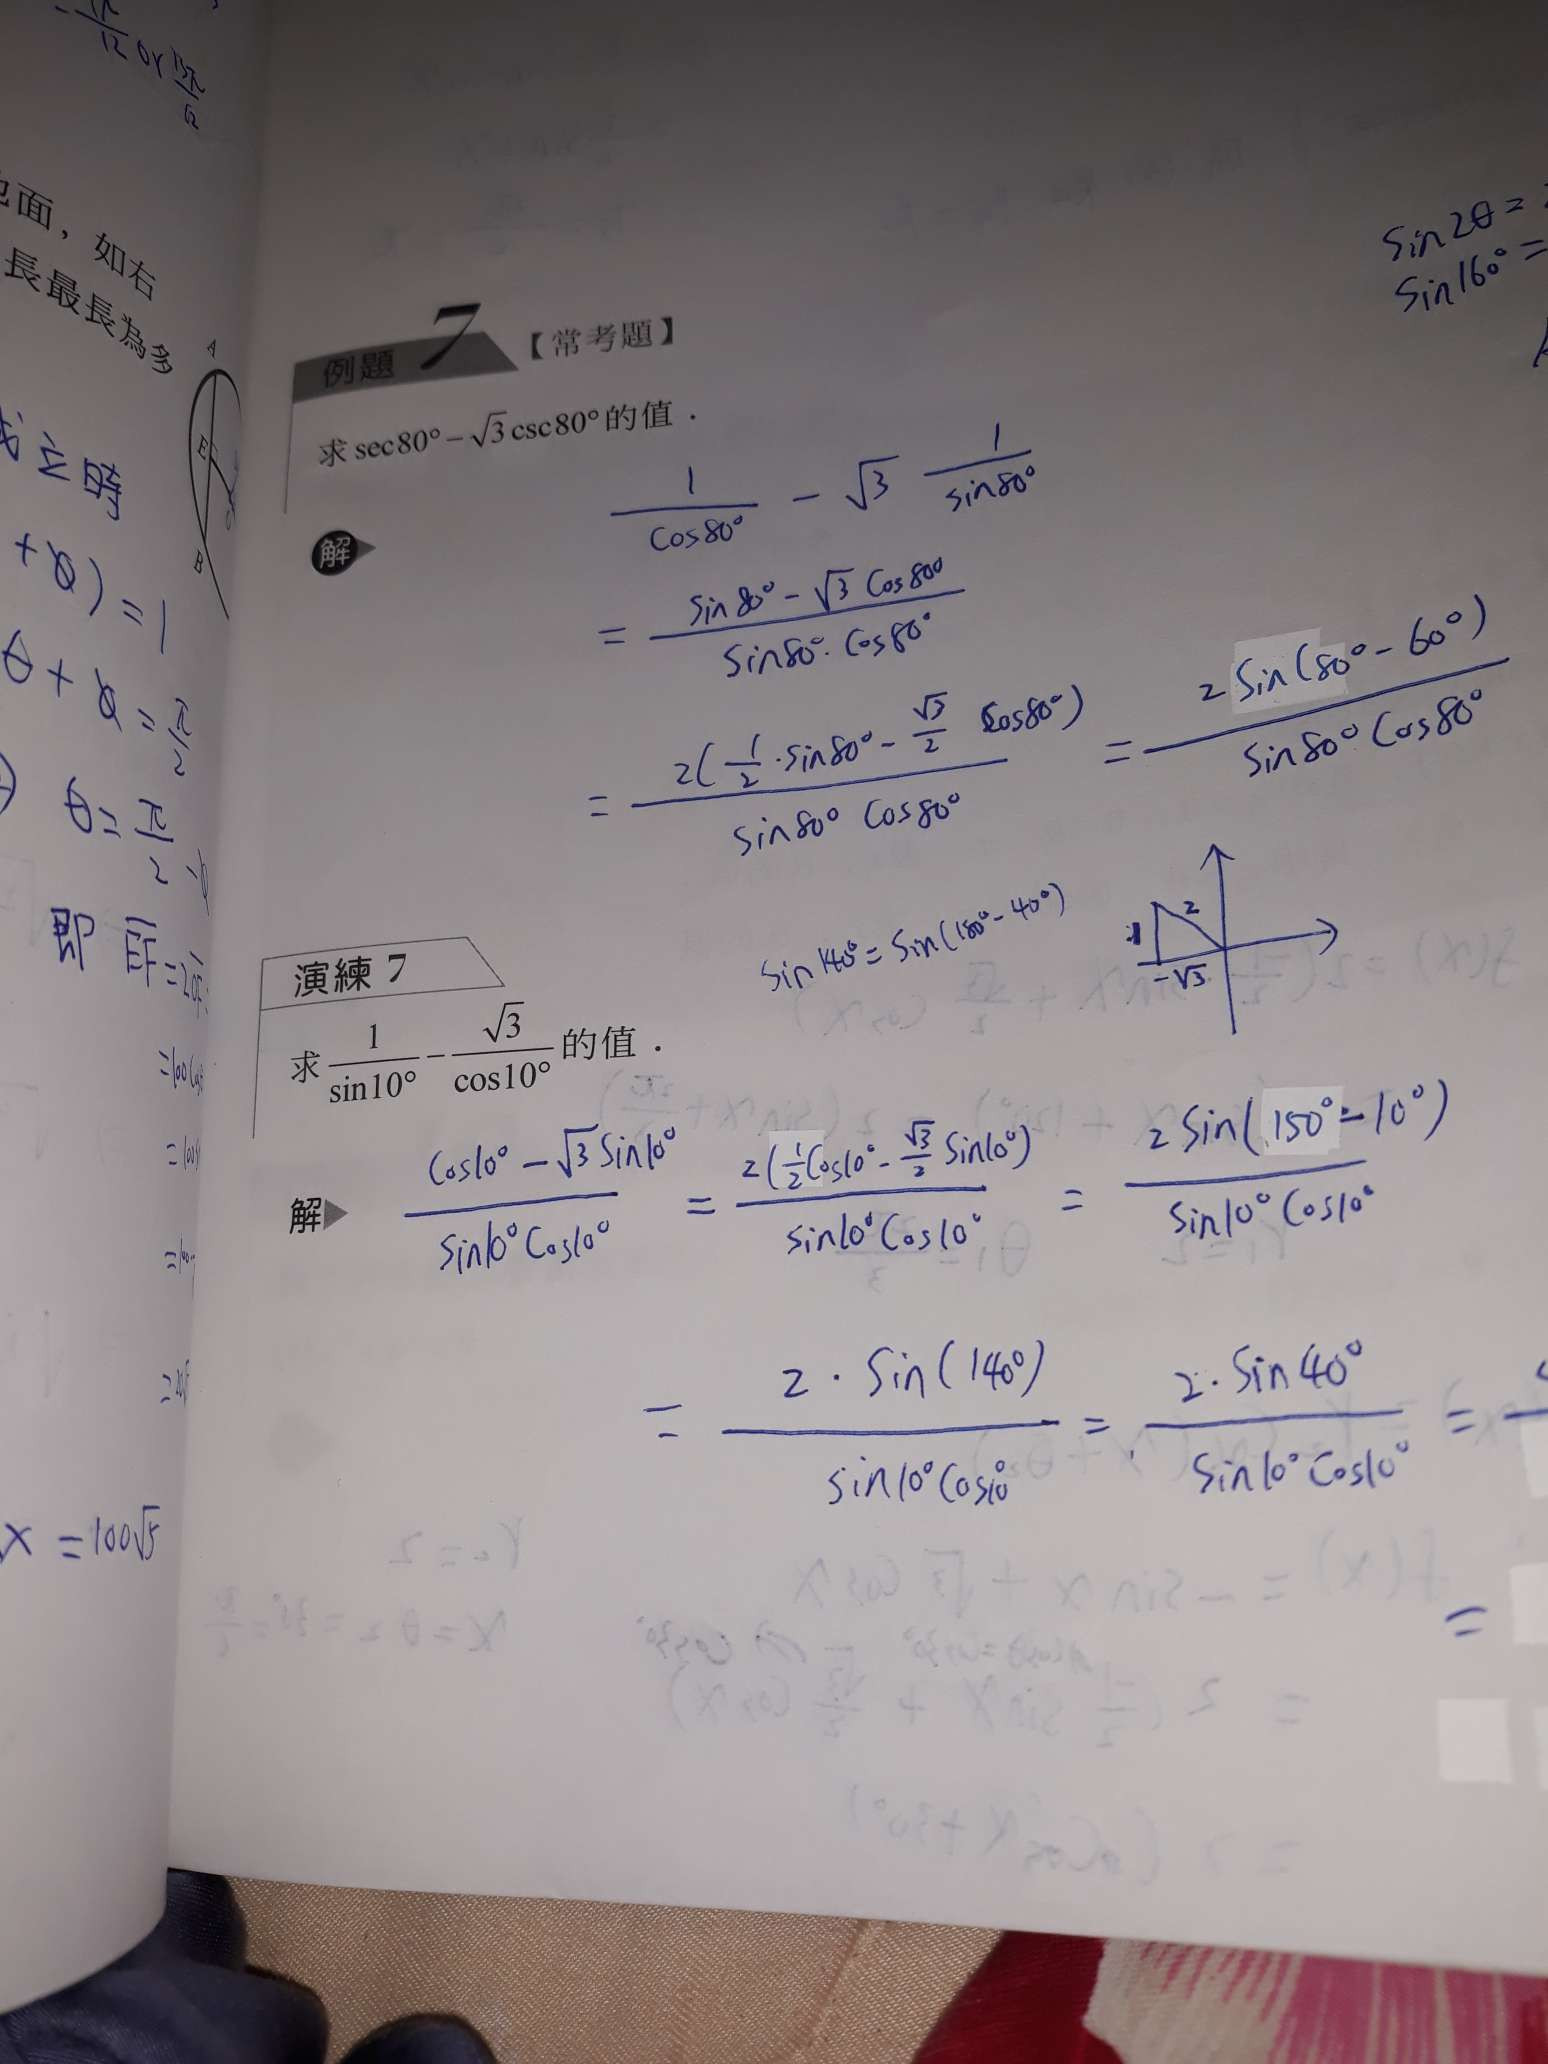 地面，如右
長最長為多
A
E
B
成立時
θ = π/2
即 EF = 2OF
x = 100√5
sin2θ = 2
sin160° =
例題 7 【常考題】
求 sec80° − √3 csc80° 的值．
解
1/cos80° − √3 1/sin80°
= (sin80° − √3 cos80°)/(sin80°·cos80°)
= 2(1/2·sin80° − √3/2 cos80°)/(sin80° cos80°) = 2sin(80° − 60°)/(sin80° cos80°)
sin140° = sin(180° − 40°)
1 2 −√3
演練 7
求 1/sin10° − √3/cos10° 的值．
解 (cos10° − √3 sin10°)/(sin10° cos10°) = 2(1/2 cos10° − √3/2 sin10°)/(sin10° cos10°) = 2sin(150° − 10°)/(sin10° cos10°)
= 2·sin(140°)/(sin10° cos10°) = 2·sin40°/(sin10° cos10°) =
=